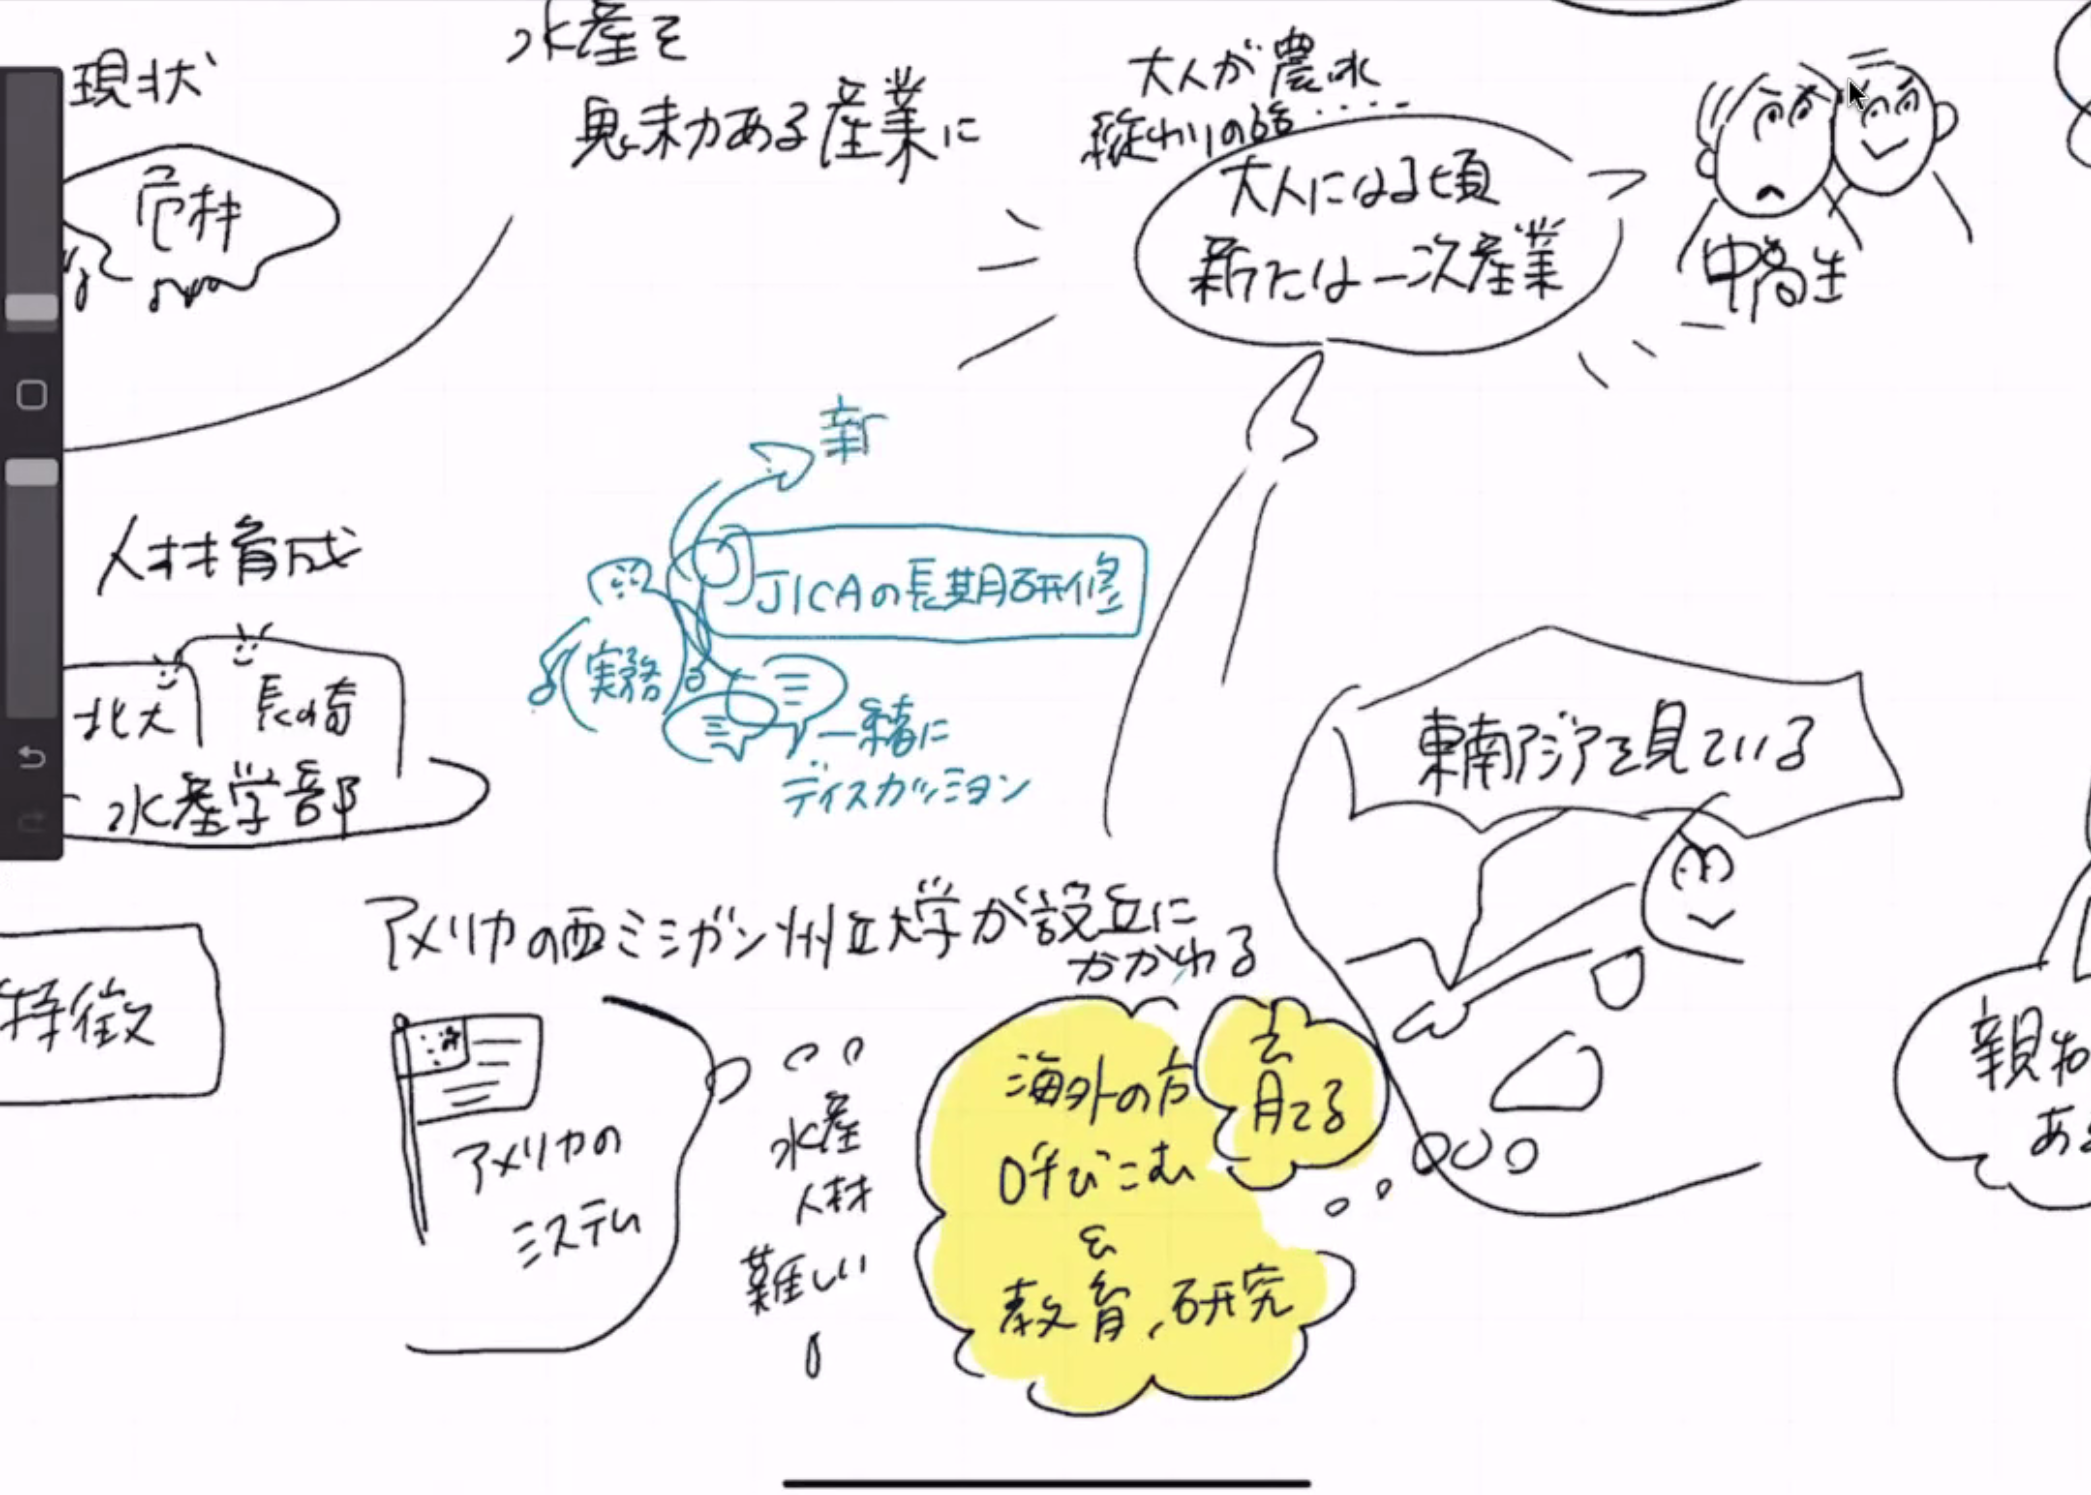 現状
水産を
魅力ある産業に
大人が農水
縦わりの
大人になる頃
新たな一次産業
中高生
新
人材育成
JICAの長期研修
実務
一緒に
ディスカッション
北大
長崎
水産学部
東南アジアを見ている
アメリカの西ミシガン州立大学が設立に
かかわる
特徴
アメリカの
システム
水産
人材
難しい
海外の方
呼びこむ
&
教育、研究
育てる